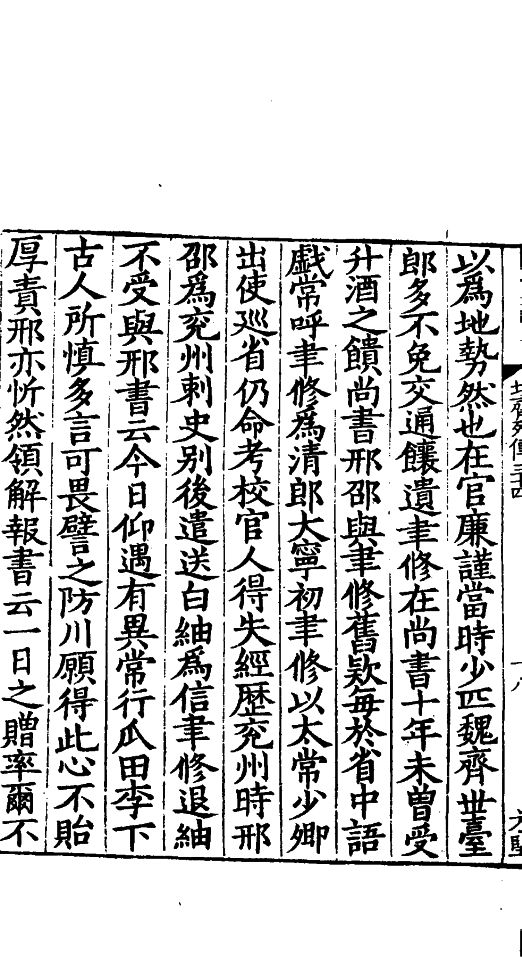 北齊列傳三十四
十八
以爲地勢然也在官廉謹當時少匹魏齊世臺
郎多不免交通饟遺聿修在尚書十年未曾受
升酒之饋尚書邢邵與聿修舊欵每於省中語
戱常呼聿修爲清郎大寧初聿修以太常少卿
出使巡省仍命考校官人得失經歷兖州時邢
邵爲兖州刺史别後遣送白紬爲信聿修退紬
不受與邢書云今日仰遇有異常行瓜田李下
古人所慎多言可畏譬之防川願得此心不貽
厚責邢亦忻然領解報書云一日之贈率爾不